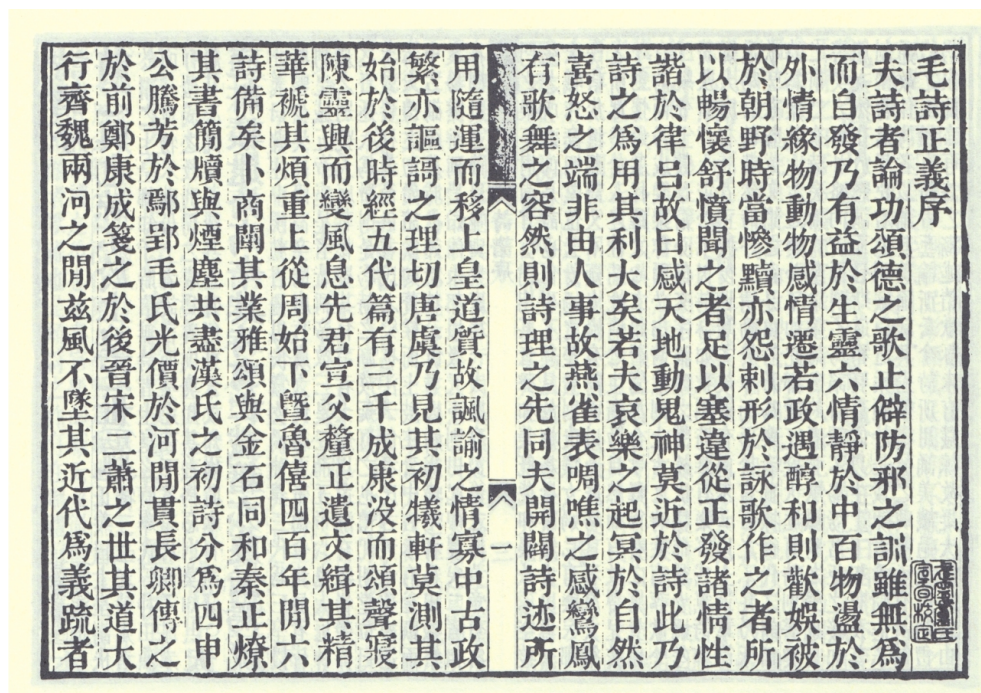 毛詩正義序
夫詩者論功頌德之歌止僻防邪之訓雖無爲
而自發乃有益於生靈六情靜於中百物盪於
外情緣物動物感情遷若政遇醇和則歡娛被
於朝野時當慘黷亦怨刺形於詠歌作之者所
以暢懷舒憤聞之者足以塞違從正發諸情性
諧於律呂故曰感天地動鬼神莫近於詩此乃
詩之爲用其利大矣若夫哀樂之起冥於自然
喜怒之端非由人事故燕雀表啁噍之感鸞鳳
有歌舞之容然則詩理之先同夫開闢詩迹所
用隨運而移上皇道質故諷諭之情寡中古政
繁亦謳謌之理切唐虞乃見其初犧軒莫測其
始於後時經五代篇有三千成康没而頌聲寢
陳靈興而變風息先君宣父釐正遺文緝其精
華褫其煩重上從周始下曁魯僖四百年閒六
詩備矣卜商闡其業雅頌與金石同和秦正燎
其書簡牘與煙塵共盡漢氏之初詩分爲四申
公騰芳於鄢郢毛氏光價於河閒貫長卿傳之
於前鄭康成箋之於後晉宋二蕭之世其道大
行齊魏兩河之閒兹風不墜其近代爲義疏者
一